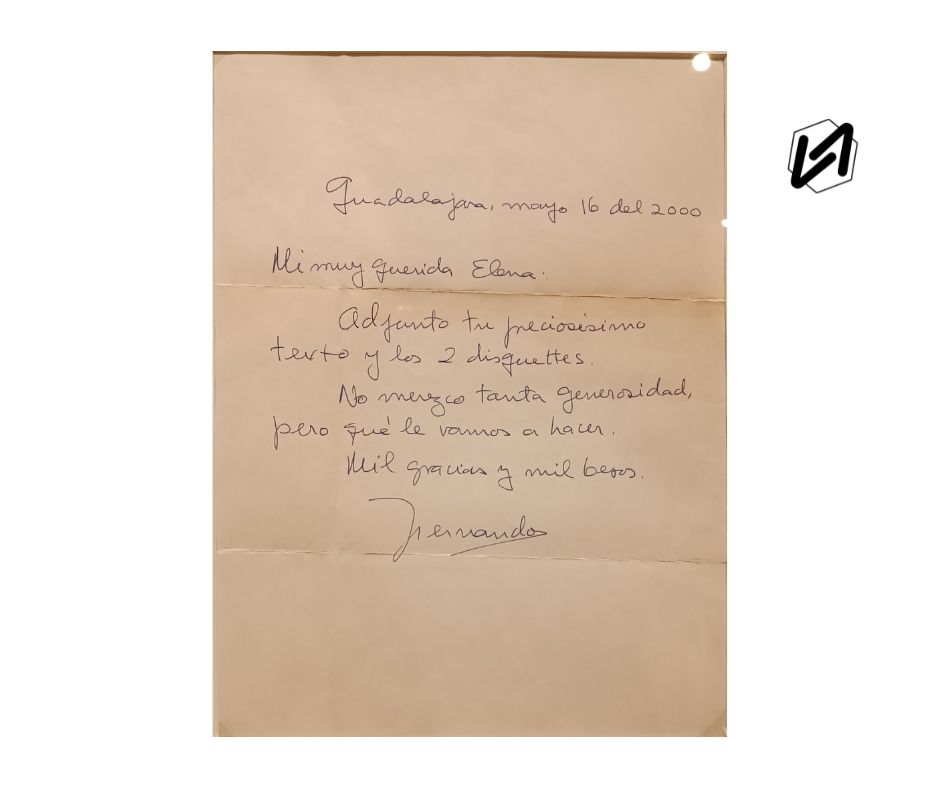 Guadalajara, mayo 16 del 2000
Mi muy querida Elena:
Adjunto tu preciosísimo
texto y los 2 disquettes.
No merezco tanta generosidad,
pero qué le vamos a hacer.
Mil gracias y mil besos.
Fernando